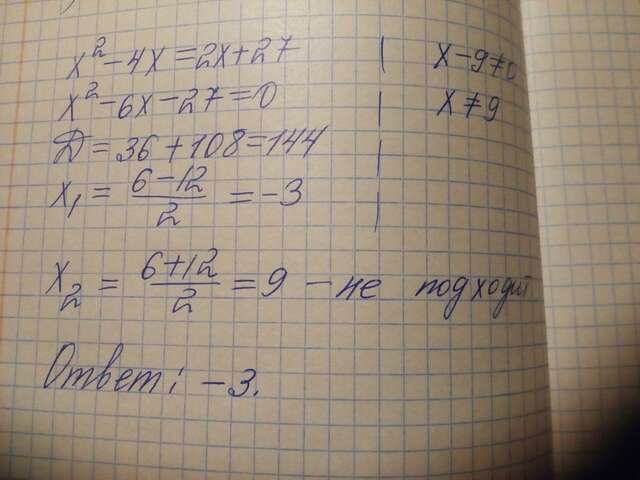 x² - 4x = 2x + 27 | x - 9 ≠ 0
x² - 6x - 27 = 0 | x ≠ 9
Д = 36 + 108 = 144 |
x₁ = (6 - 12)/2 = -3 |
x₂ = (6 + 12)/2 = 9 - не подходит
Ответ: -3.